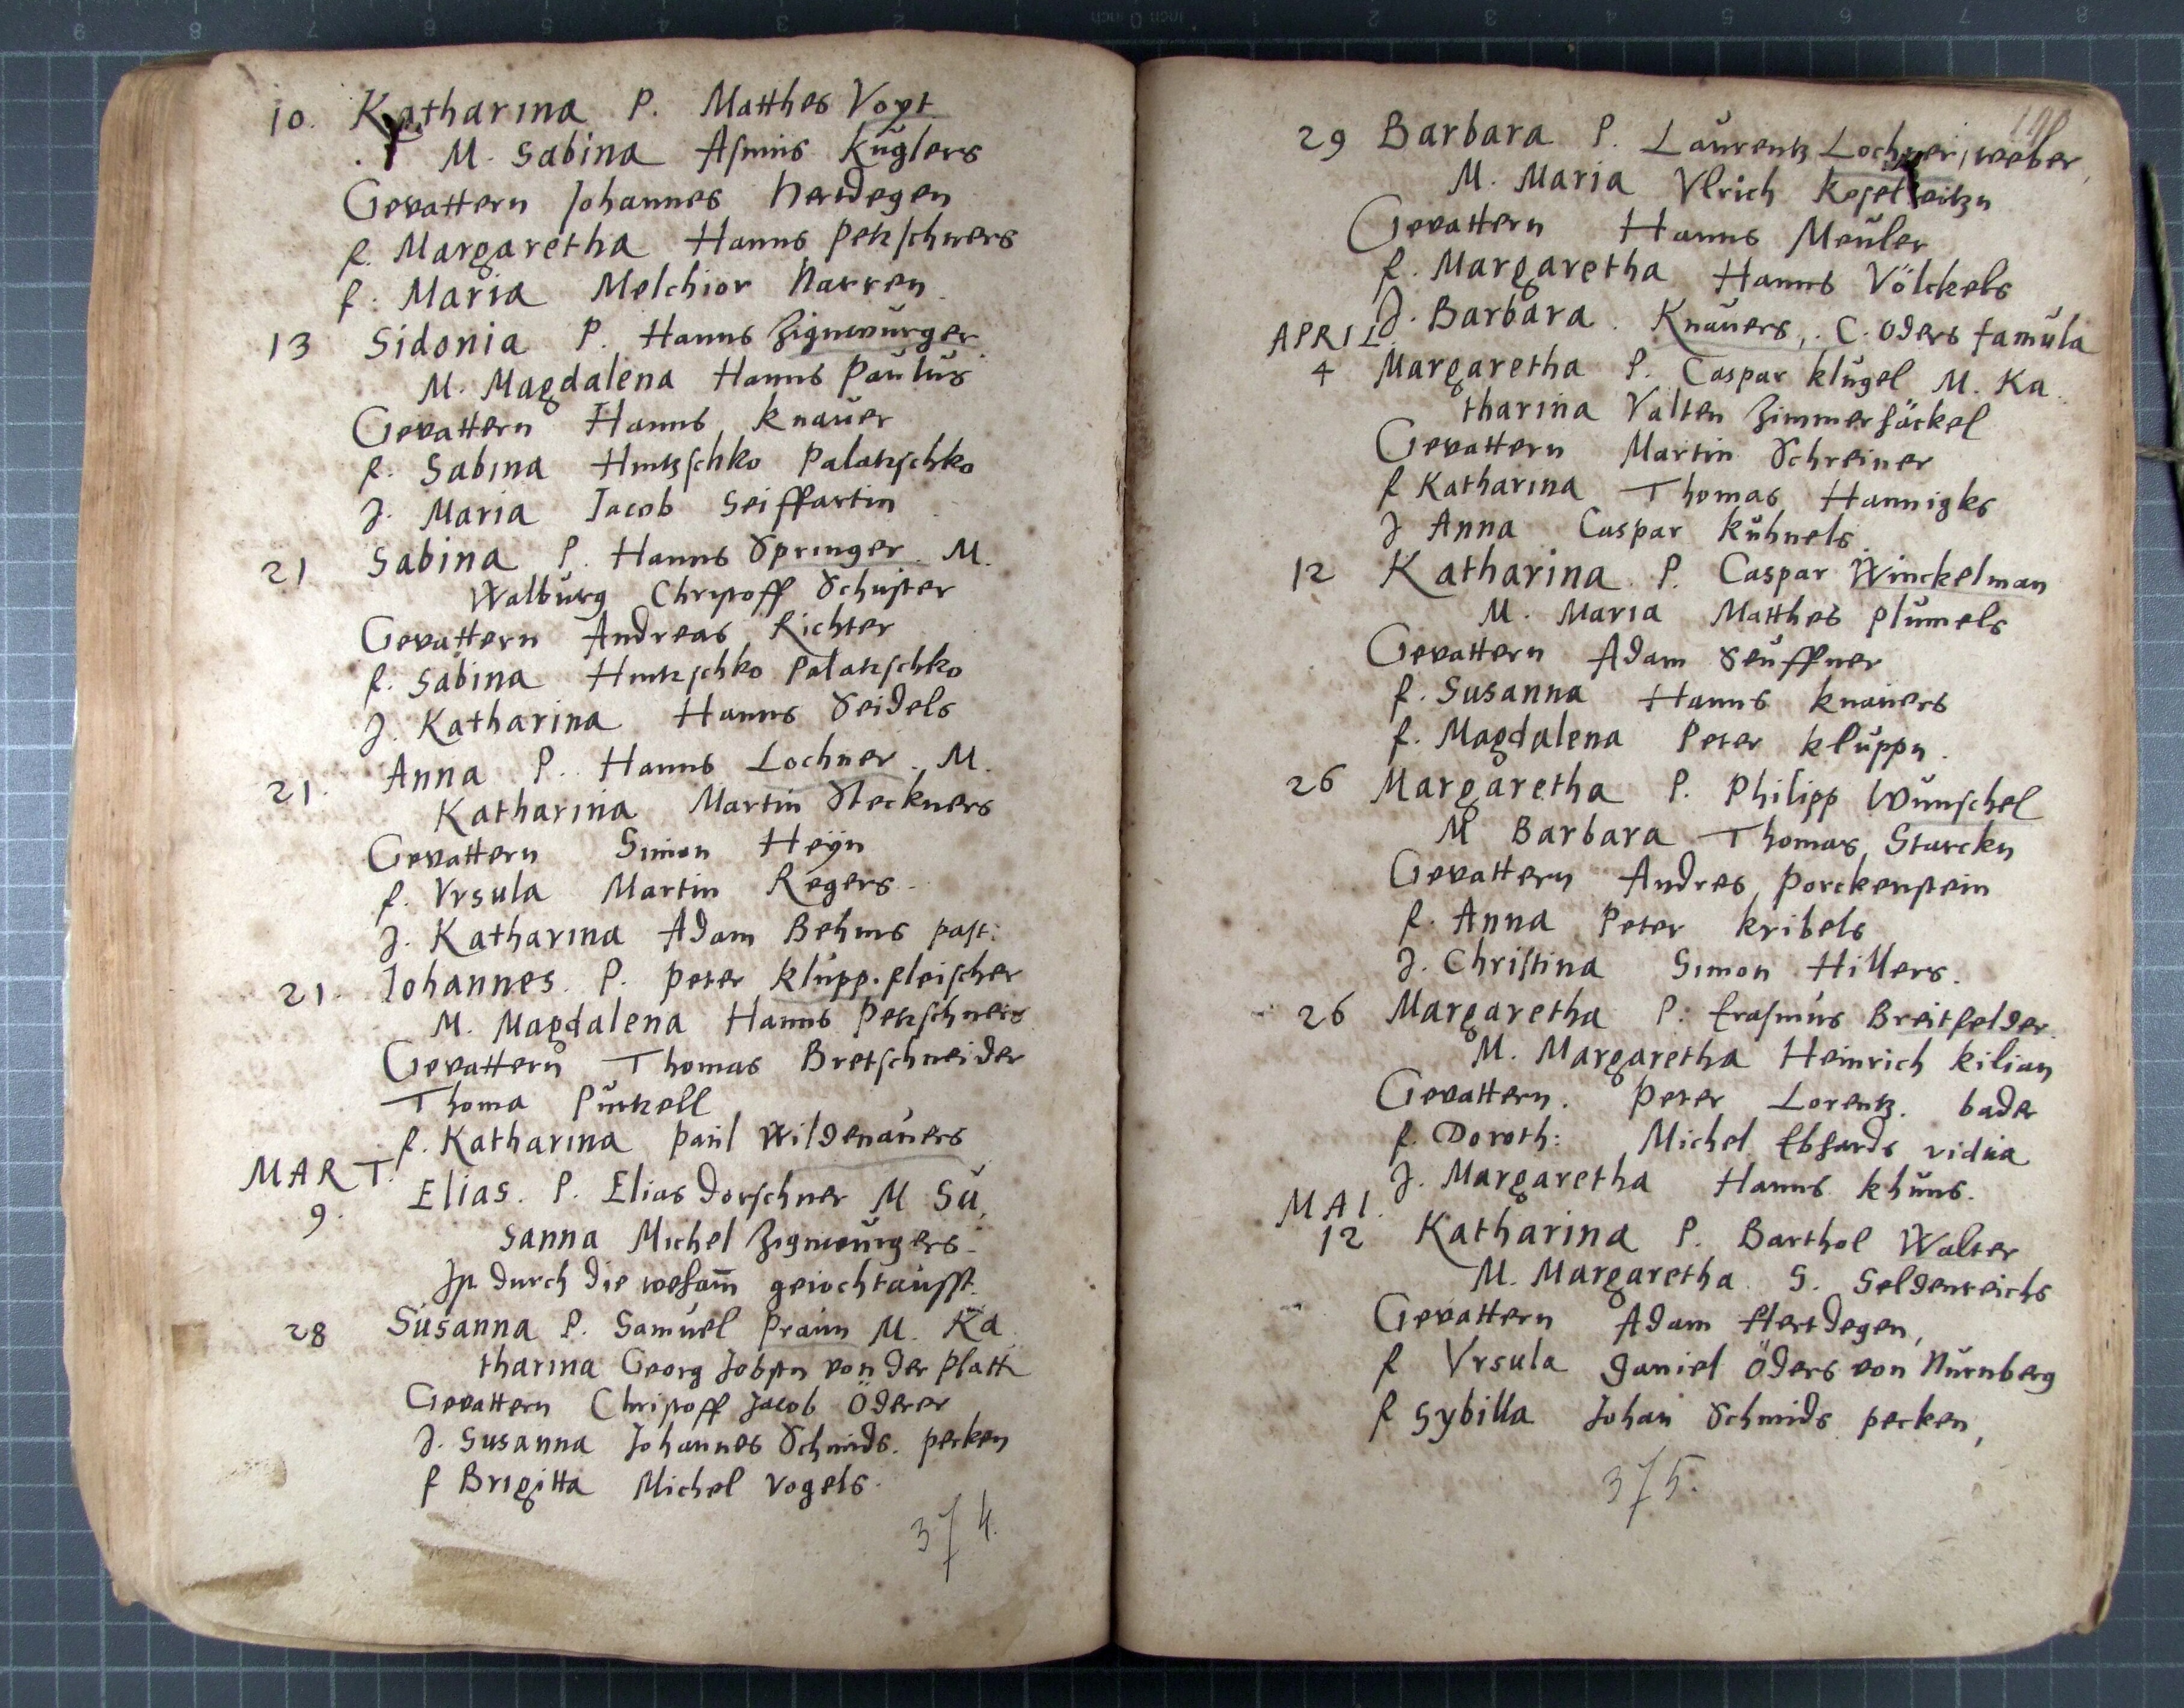 10. Katharina P. Matthes Voyt
M. Sabina Asmus Kuglers
Gevattern Johannes Herdegen
f. Margaretha Hanns Petzschners
f. Maria Melchior Narren
13 Sidonia P. Hanns Zignwurger
M. Magdalena Hanns Paulus
Gevattern Hanns Knauer
f. Sabina Hintzschko Palatzschko
J. Maria Jacob Seiffartin
21 Sabina P. Hanns Springer M.
Walburg Christoff Schuster
Gevattern Andreas Richter
f. Sabina Hintzschko Palatzschko
J. Katharina Hanns Seidels
21. Anna P. Hanns Lochner. M.
Katharina Martin Steckners
Gevattern Simon Heÿn
f. Vrsula Martin Regers
J. Katharina Adam Behms past:
21. Johannes. P. Peter klupp. fleischer
M. Magdalena Hanns Petzschners
Gevattern Thomas Bretschneider
Thoma Putzell
f. Katharina Paul Wildenauers
MART.
9. Elias. P. Elias Dorschner M Su,
sanna Michel Zignwurgers
Ist durch die gejochtaufft.
28 Susanna P. Samuel Praun M. Ka
tharina Georg Jobstn von der Platt
Gevattern Christoff Jacob Öderer
J. Susanna Johannes Schmids. pecken
f Brigitta Michel Vogels.
374.
29 Barbara P. Laurentz Lochner, weber,
M. Maria Vlrich
Gevattern Hanns Meuler
f. Margaretha Hanns Völckels
J. Barbara. Knauers, C. Oders famula
APRIL.
4 Margaretha P. Caspar klugel M. Ka
tharina Valten Zimmerhäckel
Gevattern Martin Schreiner
f Katharina Thomas Hannigks
J Anna Caspar Kuhnels
12 Katharina P. Caspar Winckelman
M. Maria Matthes plumels
Gevattern Adam Seuffner
f. Susanna Hanns knauers
f. Magdalena Peter kluppn.
26 Margaretha P. Philipp Wunschel
M Barbara Thomas Starckn
Gevattern Andres Porckenstein
f. Anna Peter kribels
J. Christina Simon Hillers.
26 Margaretha P: Erasmus Breitfelder.
M. Margaretha Heinrich kilian
Gevattern. Peter Lorentz. bader
f. Doroth: Michel Ebhards vidua
J. Margaretha Hanns khuns.
MAI.
12 Katharina P. Barthol Walter
M. Margaretha S. Seldenreichs
Gevattern Adam Herdegen,
f Vrsula Daniel Öders von Nurnberg
f Sybilla Johan Schmids pecken,
375.